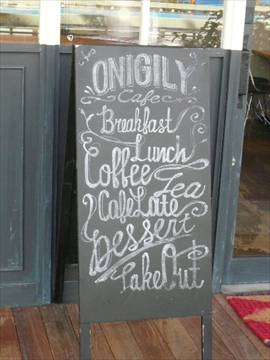 ONIGILY
Cafe
Breakfast
Lunch
Coffee
Tea
Cafe Late
Dessert
Take Out